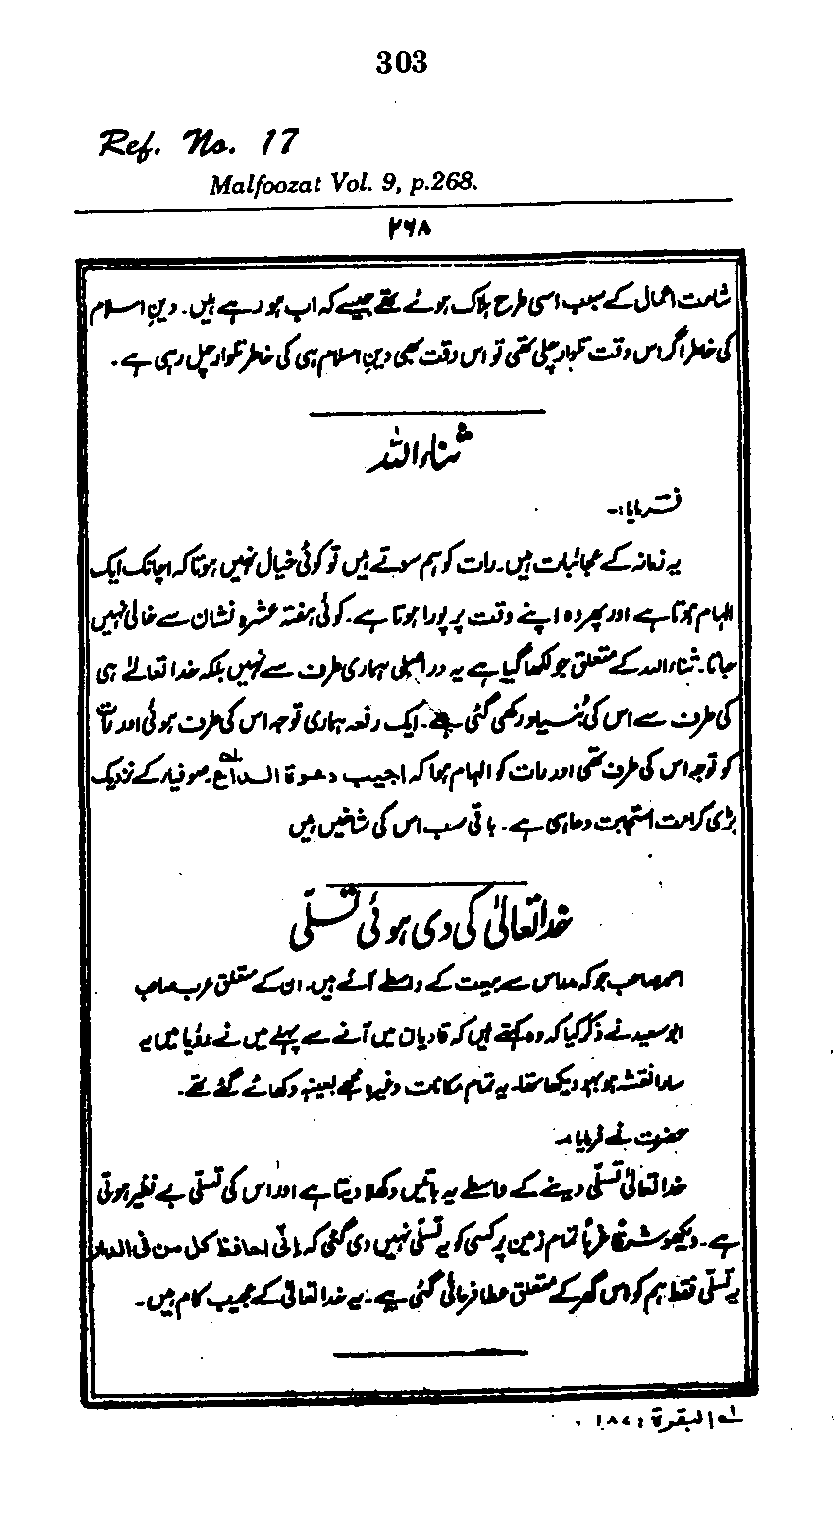 303
Ref. No. 17
Malfoozat Vol. 9, p.268.
۲۶۸
شامت اعمال کے سبب اسی طرح ہلاک ہوئے تھے جیسے کہ اب ہو رہے ہیں۔ دینِ اسلام
کی خاطر اگر اس وقت تلوار چلی تھی تو اس وقت بھی دینِ اسلام ہی کی خاطر تلوار چل رہی ہے۔
ثناء اللہ
فرمایا:۔
یہ زمانہ کے عجائبات ہیں۔ رات کو ہم سوتے ہیں تو کوئی خیال نہیں ہوتا کہ اچانک ایک
الہام ہوتا ہے اور پھر وہ اپنے وقت پر پورا ہوتا ہے۔ کوئی ہفتہ عشرہ نشان سے خالی نہیں
جاتا۔ ثناء اللہ کے متعلق جو لکھا گیا ہے یہ دراصل ہماری طرف سے نہیں بلکہ خدا تعالےٰ ہی
کی طرف سے اس کی بُنیاد رکھی گئی ہے۔ ایک دفعہ ہماری توجہ اس کی طرف ہوئی اور رات
کو توجہ اس کی طرف تھی اور رات کو الہام ہوا کہ اجیب دعوۃ الداع۔ صوفیاء کے نزدیک
بڑی کرامت استجابت دعا ہی ہے۔ باقی سب اس کی شاخیں ہیں
خدا تعالیٰ کی دی ہوئی تسلّی
احمد صاحب جو کہ مدراس سے بیعت کے واسطے آئے ہیں۔ ان کے متعلق عرب صاحب
ابو سعید نے ذکر کیا کہ وہ کہتے ہیں کہ قادیان میں آنے سے پہلے میں نے رؤیا میں یہ
سارا نقشہ ہو بہو دیکھا تھا۔ یہ تمام مکانات وغیرہ مجھے بعینہٖ دکھائے گئے تھے۔
حضرت نے فرمایا:۔
خدا تعالیٰ تسلّی دینے کے واسطے یہ باتیں دکھلا دیتا ہے اور اس کی تسلّی بے نظیر ہوتی
ہے۔ دیکھو شرقاً غرباً تمام زمین پر کسی کو یہ تسلّی نہیں دی گئی کہ اِنّی احافظ کل من فی الدار
یہ تسلّی فقط ہم کو اس گھر کے متعلق عطا فرمائی گئی ہے۔ یہ خدا تعالیٰ کے عجیب کام ہیں۔
لہ البقرۃ : ۱۸۷